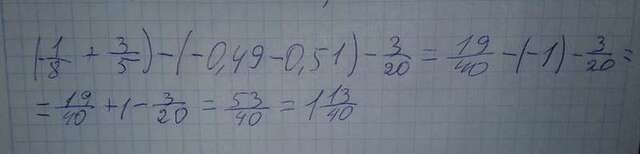 (-1/8 + 3/5) - (-0,49 - 0,51) - 3/20 = 19/40 - (-1) - 3/20 =
= 19/40 + 1 - 3/20 = 53/40 = 1 13/40